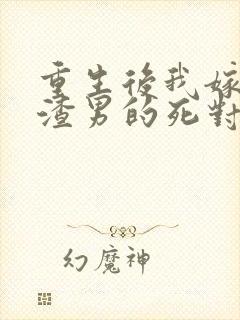 重生後我嫁
渣男的死對
幻魔神